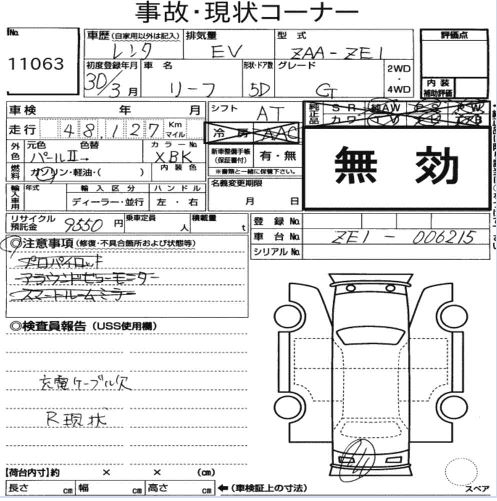 事故・現状コーナー
No.
11063
車歴(自家用以外は記入)
レンタ
排気量
EV
型式
ZAA-ZE1
評価点
初度登録年月
30/3月
車名
リーフ
形状・ドア数
5D
グレード
G
2WD
・
4WD
内装
補助評価
車検 年 月
走行 48,127 Km マイル
シフト
AT
冷房 AAC
純正品
S R
純AW
カワ
外色
元色 色替
パールII→
カラーNo.
XBK
内装色
燃料
ガソリン・軽油・( )
新車整備手帳
(保証書付)
有・無
※書類と一緒に保管下さい。
無効
輸入車用
年式
輸入区分
ディーラー・並行
ハンドル
左・右
名義変更期限
月 日
リサイクル
預託金
9550円
乗車定員
人
積載量
t
登録No.
車台No.
ZE1-006215
シリアルNo.
◎注意事項(修復・不具合箇所および状態等)
プロパイロット
アラウンドビューモニター
スマートルームミラー
◎検査員報告(USS使用欄)
充電ケーブル欠
R現状
【荷台内寸】約 × × (cm)
長さ cm 幅 cm 高さ cm
←(車検証上の寸法)
スペア